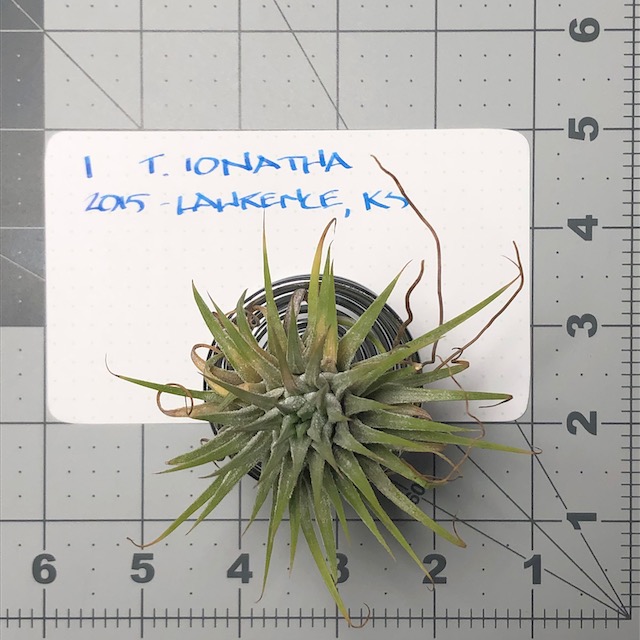 1 T. IONATHA
2015 - LAWRENCE, KS
6
5
4
3
2
1
6 5 4 3 2 1
60